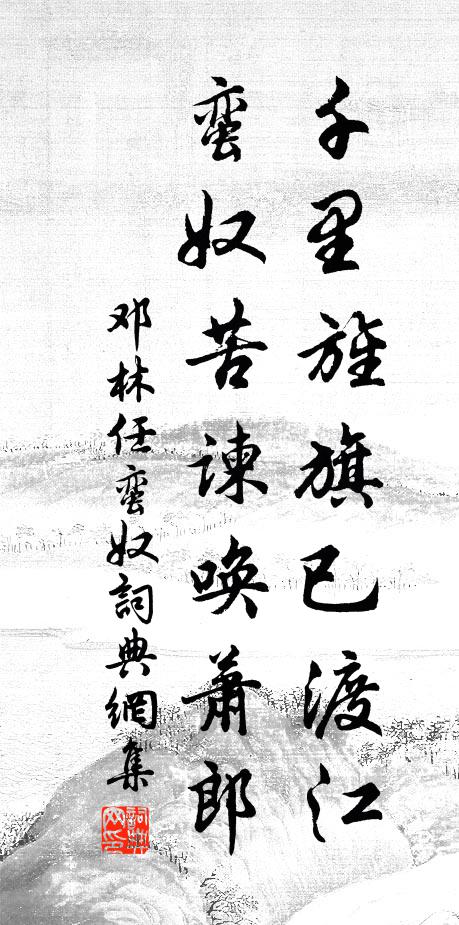 千里旌旗已渡江
蛮奴苦諫唤蕭郎
邓林任蛮奴詞典網集